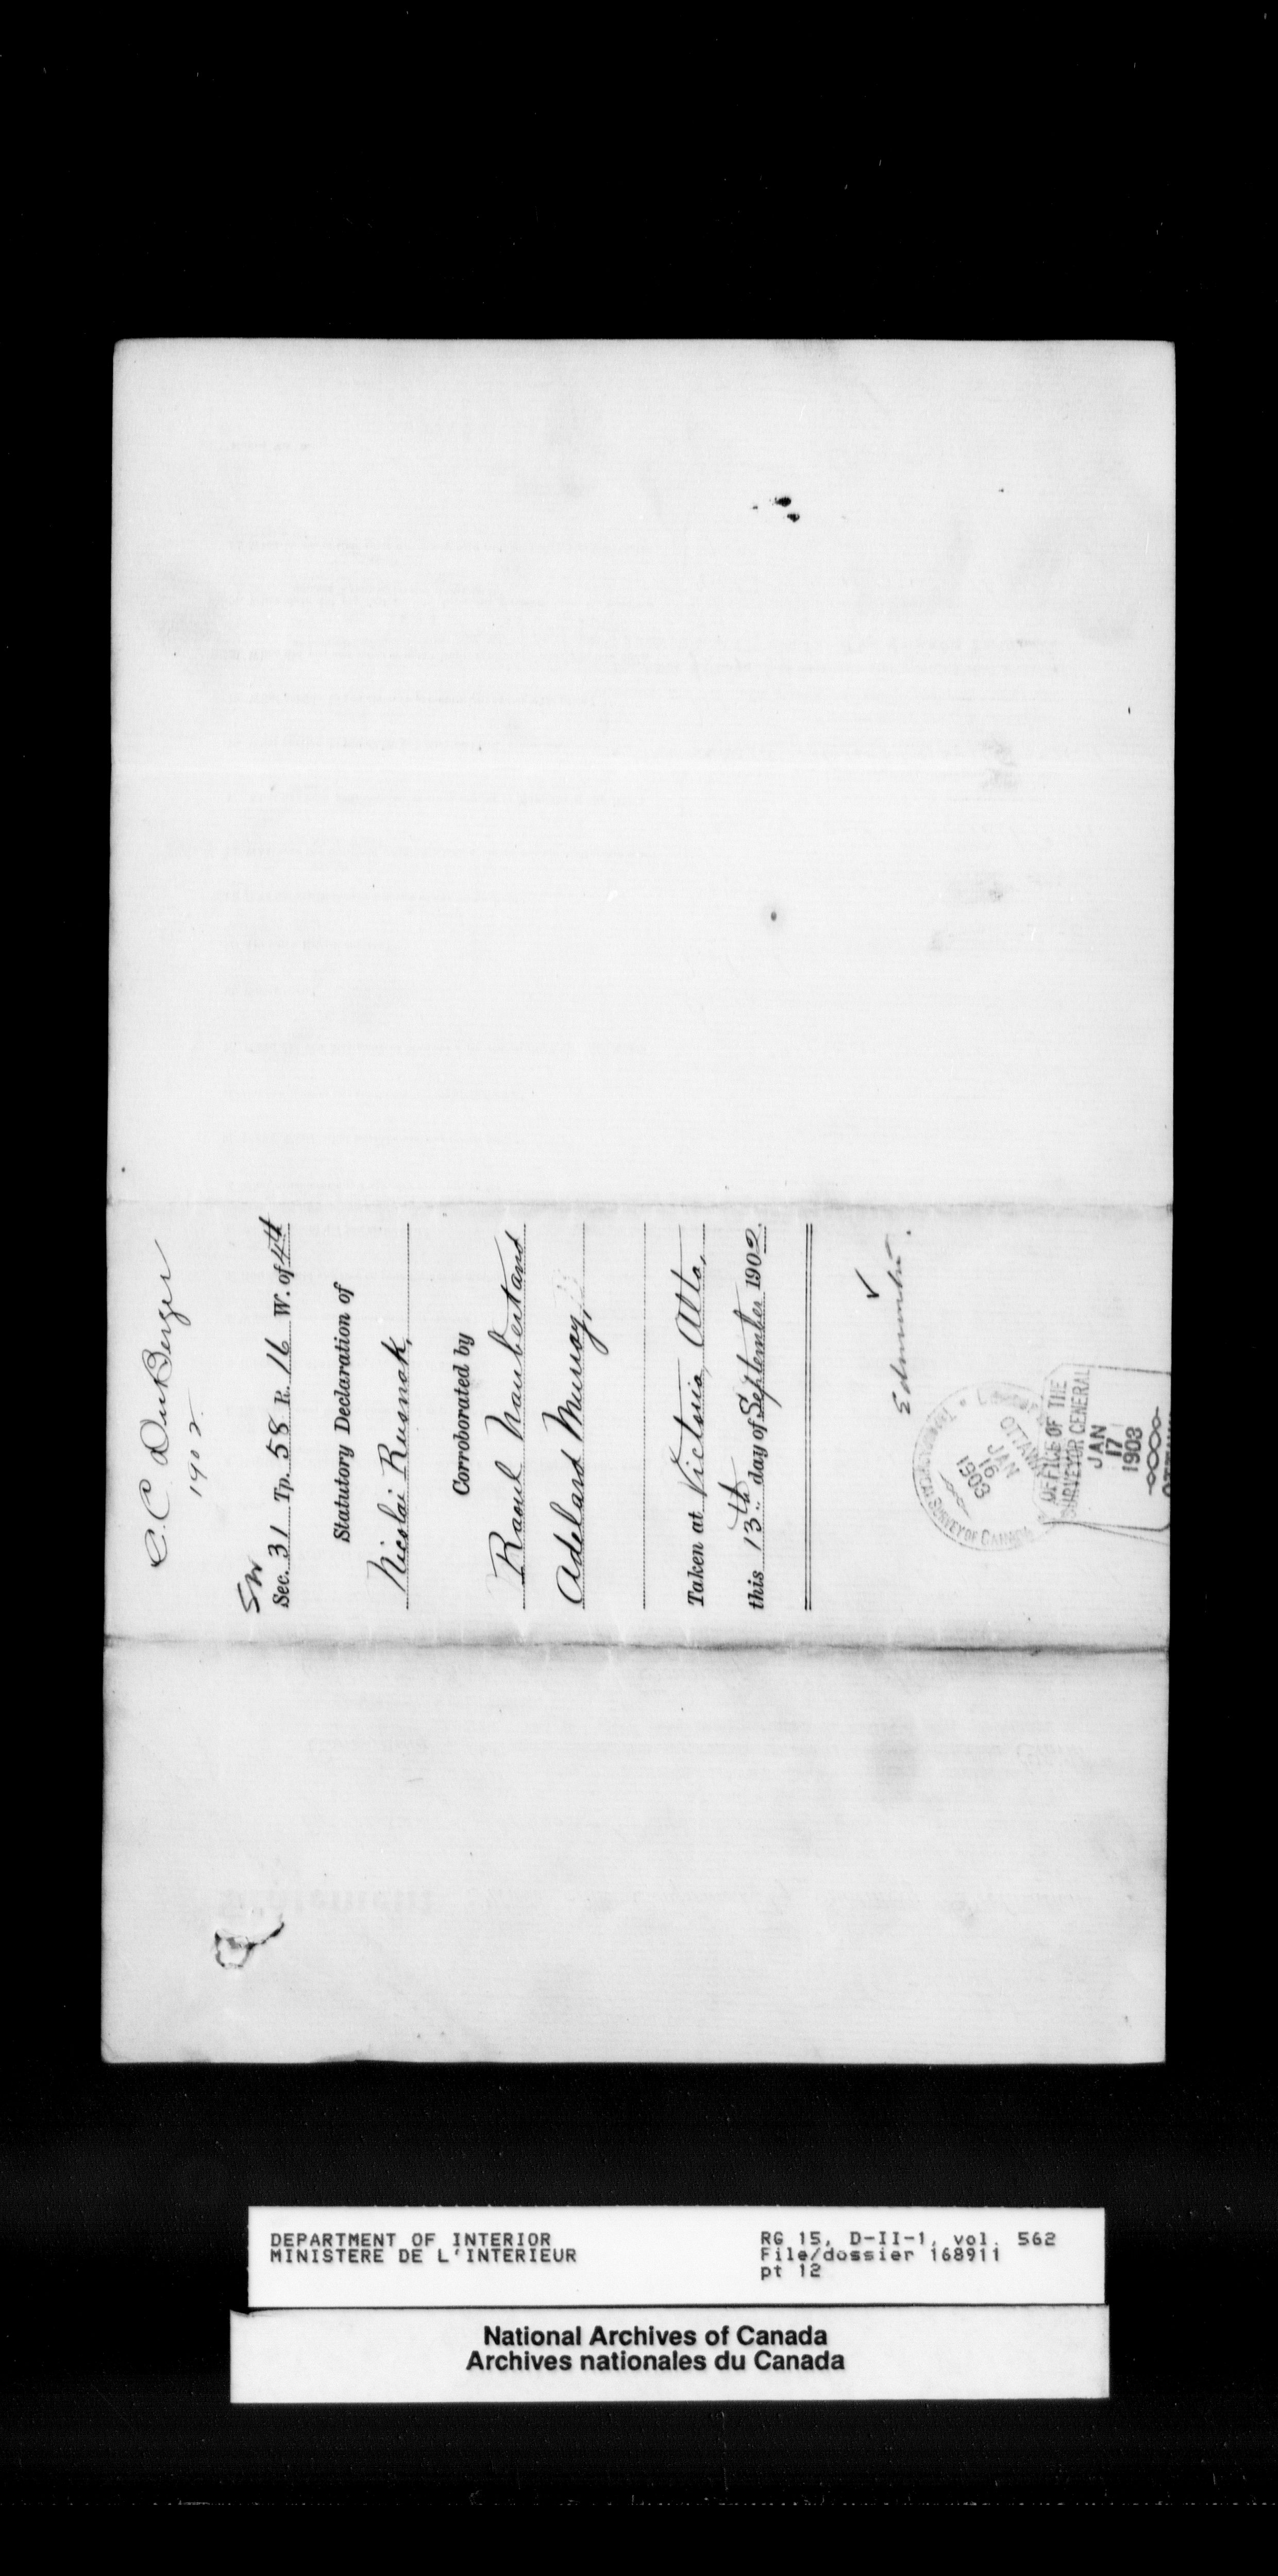 C. C. DuBerger
1902
SW
Sec. 31 Tp. 58 R. 16 W. of 4th
Statutory Declaration of
Nicolai Rusnak,
Corroborated by
Raoul and
Adelard
Taken at Victoria, Alta,
this 13th day of September 1902.
Edmonton.
TOPOGRAPHICAL SURVEY OF CANADA
OTTAWA
JAN
16
1903
OFFICE OF THE
SURVEYOR GENERAL
JAN
17
1903
DEPARTMENT OF INTERIOR
MINISTERE DE L'INTERIEUR
RG 15, D-II-1, vol. 562
File/dossier 168911
pt 12
National Archives of Canada
Archives nationales du Canada